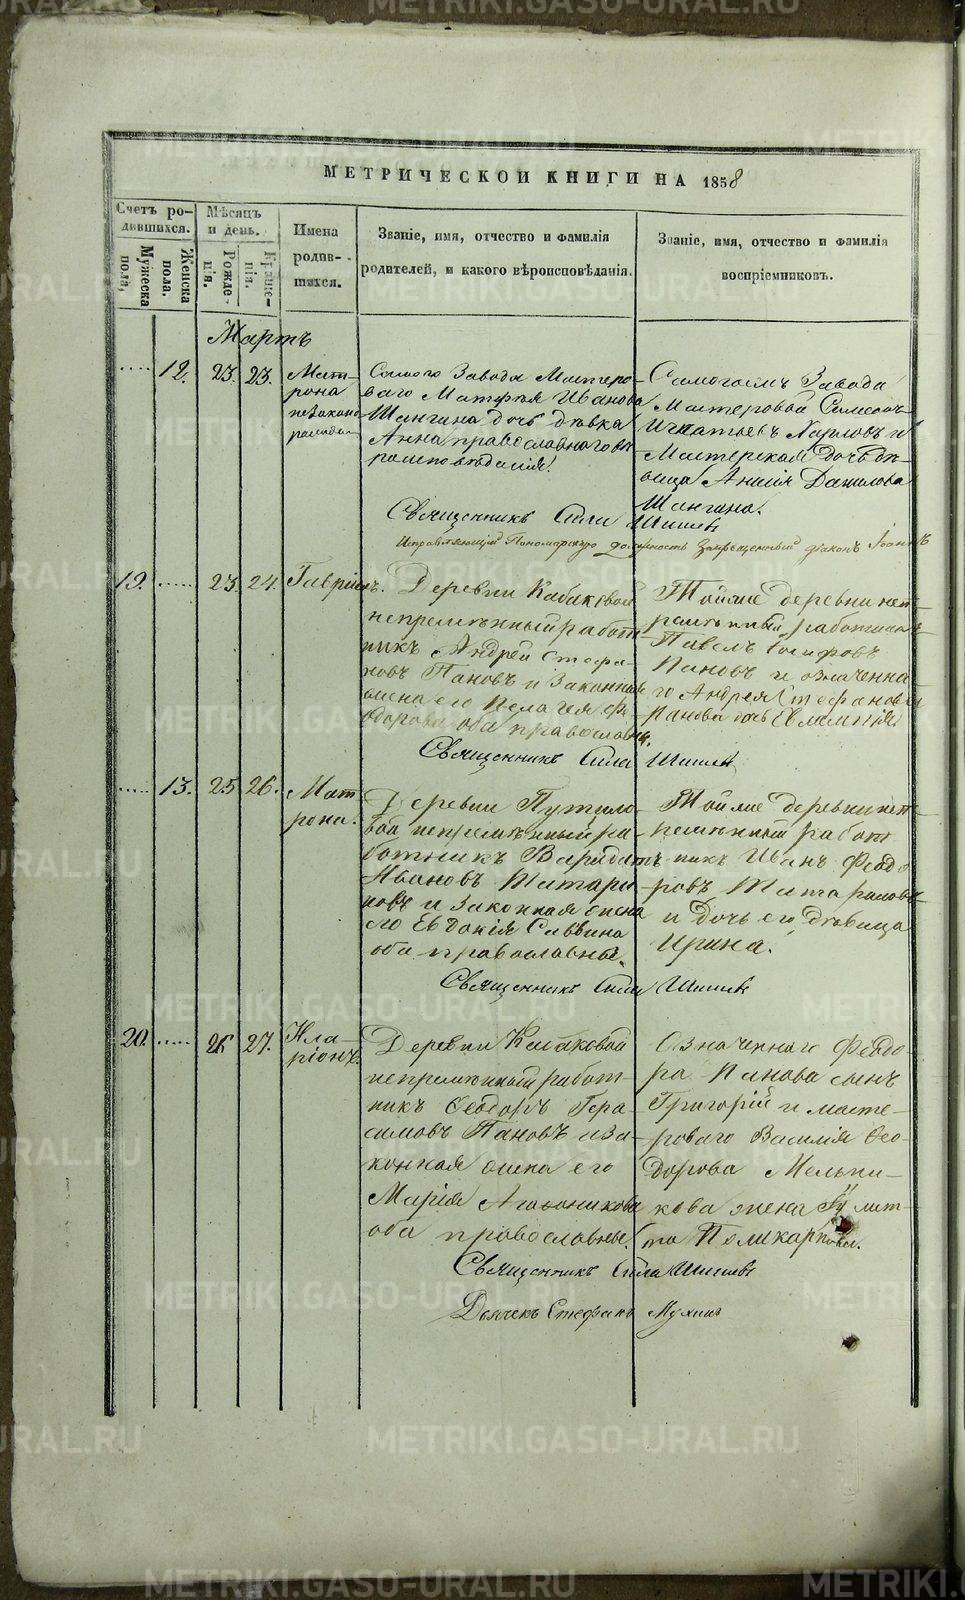 МЕТРИЧЕСКОЙ КНИГИ НА 1858
Счетъ ро-
дившихся.
Мужеска
пола,
Женска
пола.
Мѣсяцъ
и день.
Рожде-
нія.
Креще-
нія.
Имена
родив-
шихся.
Званіе, имя, отчество и фамилія
родителей, и какого вѣроисповѣданія.
Званіе, имя, отчество и фамилія
воспріемниковъ.
Мартъ
12. 23. 23.
Мат-
рона
незаконо
Самого Завода Мастеро-
ваго Матфея Иванова
Шангина дочь дѣвка
Анна православнаго вѣ-
роисповѣданія.
Самогожъ Завода
Мастеровой Самсонъ
Игнатьевъ Харловъ и
Мастерская дочь дѣ-
вица Анисія Данилова
Шангина.
Священникъ Сила Шишевъ
Исправляющій Пономарскую должность Запрещенный діаконъ Іоаннъ
19. 23. 24. Гавріилъ.
Деревни Кабаковой
непремѣнный работ-
никъ Андрей Стефа-
новъ Пановъ и Законная
жена его Пелагея Фе-
дорова оба православны.
Тойже деревни неп-
ремѣнный работникъ
Павелъ Іосифовъ
Пановъ и означенна-
го Андрея Стефанова
Панова дочь Евлампія
Священникъ Сила Шишевъ
13. 25 26. Мат
рона.
Деревни Путило-
вой непремѣнный ра-
ботникъ
Ивановъ Татари-
новъ и Законная жена
его Евдокія Саввина
оба православны.
Тойже деревни неп-
ремѣнный работ-
никъ Иванъ Феодо-
ровъ Татариновъ
и дочь его дѣвица
Ирина.
Священникъ Сила Шишевъ
20. 26 27. Ила-
ріонъ.
Деревни Кабаковой
непремѣнный работ-
никъ Феодоръ Гера-
симовъ Пановъ и За-
конная жена его
Марія Агафоникова
оба православны.
Означеннаго Феодо-
ра Панова сынъ
Григорій и масте-
роваго Василія Фео-
дорова Мельни-
кова жена Улит-
та Поликарпова.
Священникъ Сила Шишевъ
Дьячекъ Стефанъ Мухинъ
METRIKI.GASO-URAL.RU